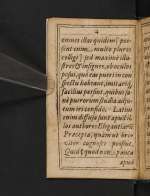 4
omnes illas quidem, pos-
sent enim, multo plures
colligi; sed maxime illu-
stres & insignes, ab oculos
posui, quò eas pueri in con-
spectu habeant, imitari q,
facilius possint, quibus ip
se puerorum studia adju-
tum iri confido. Latini
enim diffusè sunt apud il-
los autores Elegantiarũ
Præcepta, quàm ut bre-
viter cognosci possint.
Quid quod non pauca
apud